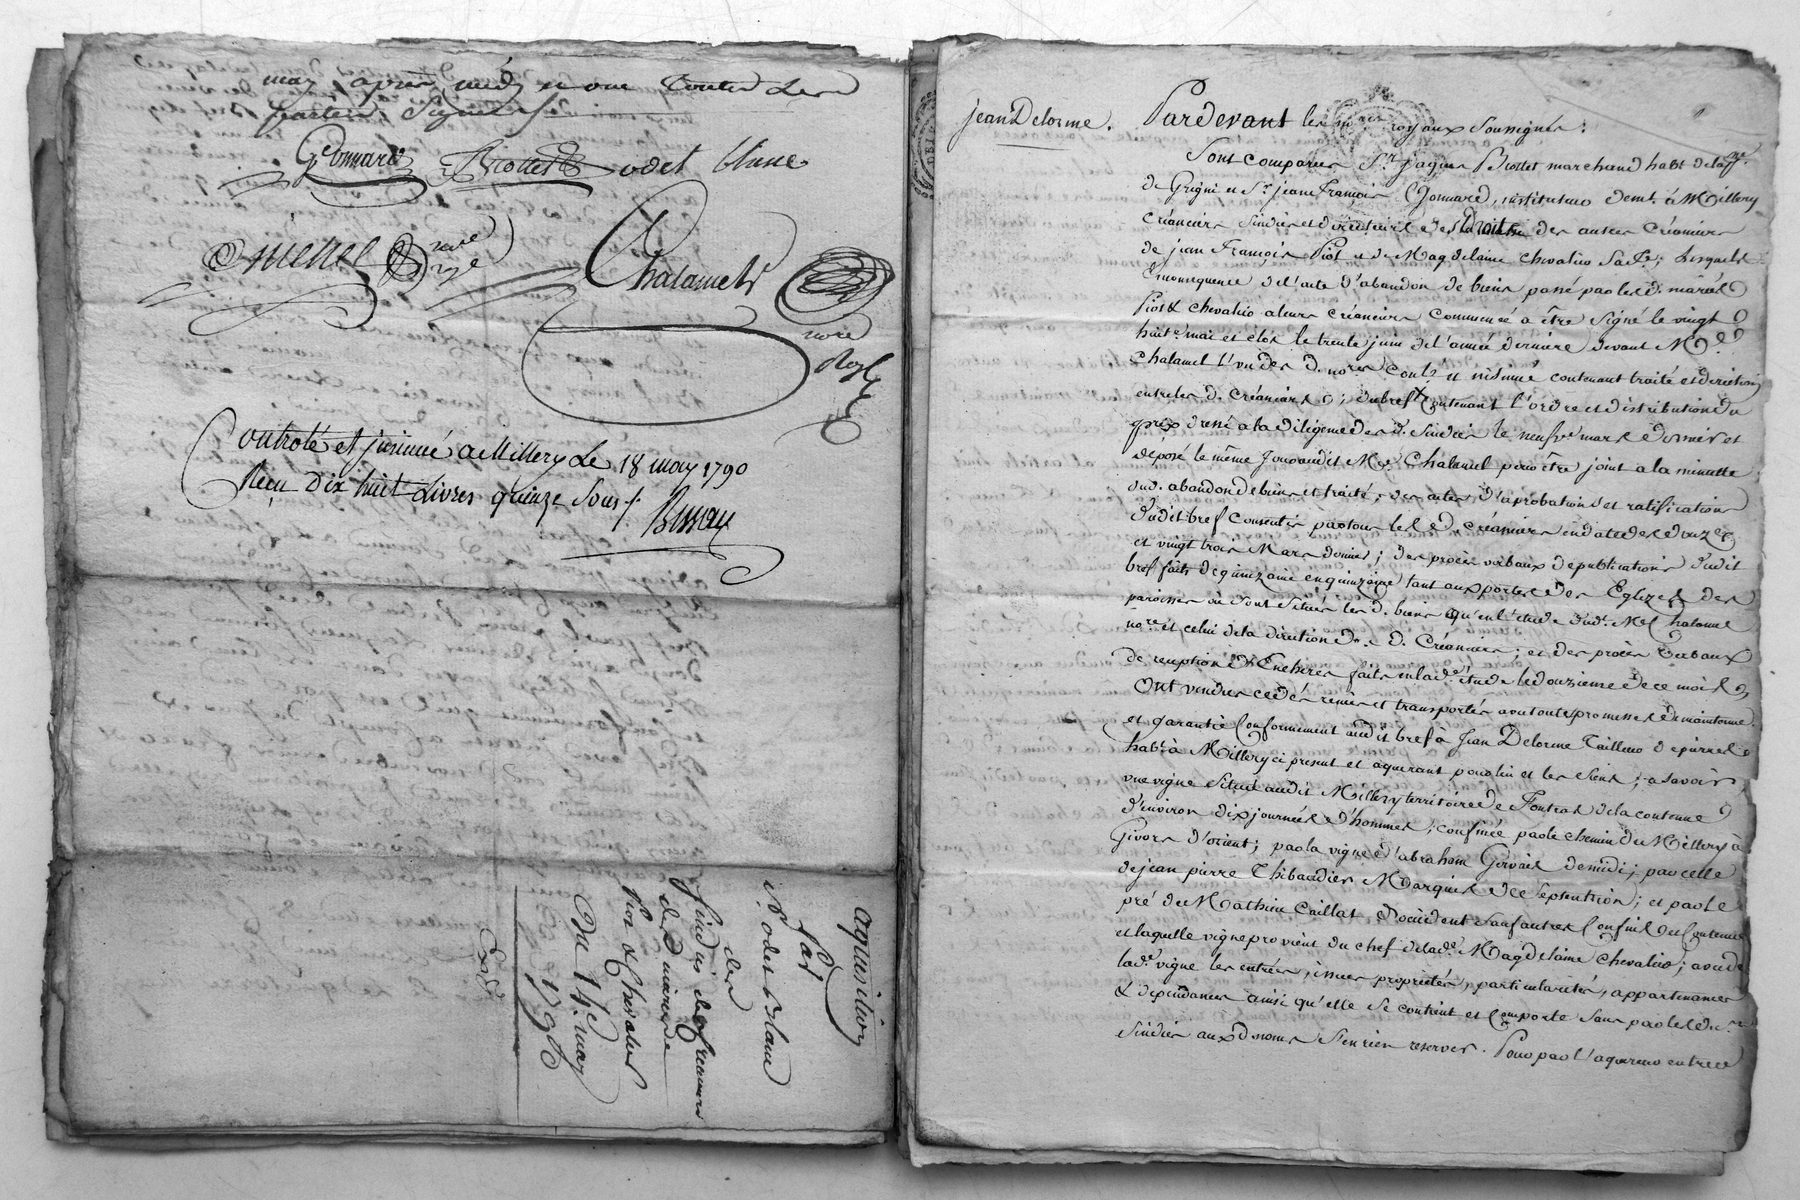 may après midy et ont toutes les
parties signés
Gonnard Brottet odet blanc
Chalamel
nore
Royl
Controlé et insinué a Millery Le 18 may 1790
Reçu Dix huit Livres quinze Sous
aquisition
par
Sr. odet Blanc
des
Sindics des creanciers
des d. mariés
Piot & Chevalier
Du 14e. may
1790
jean Delorme.
Pardevant les nores royaux Soussignés:
Sont comparus Sr. jaques Brottet marchand habt de la
de Grigni et Sr. jean François Gonnard, instituteur demt. à Millery
créanciers Sindics et directeurs des des autres Créanciers
de jean François Piot et de Magdelaine Chevalier Sa fe.; Lesquels
en consequence de l'acte d'abandon de biens passé par les d. mariés
Piot & Chevalier a leurs créanciers commencé a être Signé le vingt
huite. mai et clos le trente juin de l'année derniere devant Me.
Chalamel l'un des d. nores. Conlé. et insinué contenant traité et direction
entre les d. Créanciers; du bref contenant l'ordre et distribution du
prix dressé a la diligence des d. Sindics le neufve. mars dernier et
déposé le même jour audit Me. Chalamel pour être joint a la minutte
dud. abandon de biens et traité; des actes d'aprobation et ratification
dudit bref consentis par tous les d. créanciers en date des onze
et vingt trois Mars dernier; des procès verbaux de publications dudit
bref faits de quinzaine en quinzaine tant aux portes des Eglizes des
paroisses où sont Situés les d. biens qu'en l'étude dud. Me. Chalamel
nore. et celui de la direction des d. Créanciers; et des procès verbaux
de reception d'Encheres faits en lade. étude le douzieme de ce mois
Ont vendus cedés remis et transportés avec toute promesse de maintenue
et garantie Conformement audit bref à Jean Delorme Tailleur de pierres
habt. à Millery ci present et aquerant pour lui et les Siens; a Savoir
une vigne Située audit Millery territoire de de la contenue
d'environ dix journées d'hommes; confinée par le chemin de Millery à
Givors d'orient; par la vigne d'abraham Gervais de midi; par celle
de jean pierre Thibaudier Marquis de Septentrion; et par le
pré de Mathieu Caillat, d'occident Sauf autres Confins de Contenue
et laquelle vigne provient du chef de lade. Magdelaine Chevalier; avec de
lade. vigne les entrées, issues proprietés, particularités, appartenances
& dependances ainsi qu'elle Se contient et Comporte Sans par les d.
Sindics aux d. noms S'en rien reserver. Pour par l'aquereur entrer